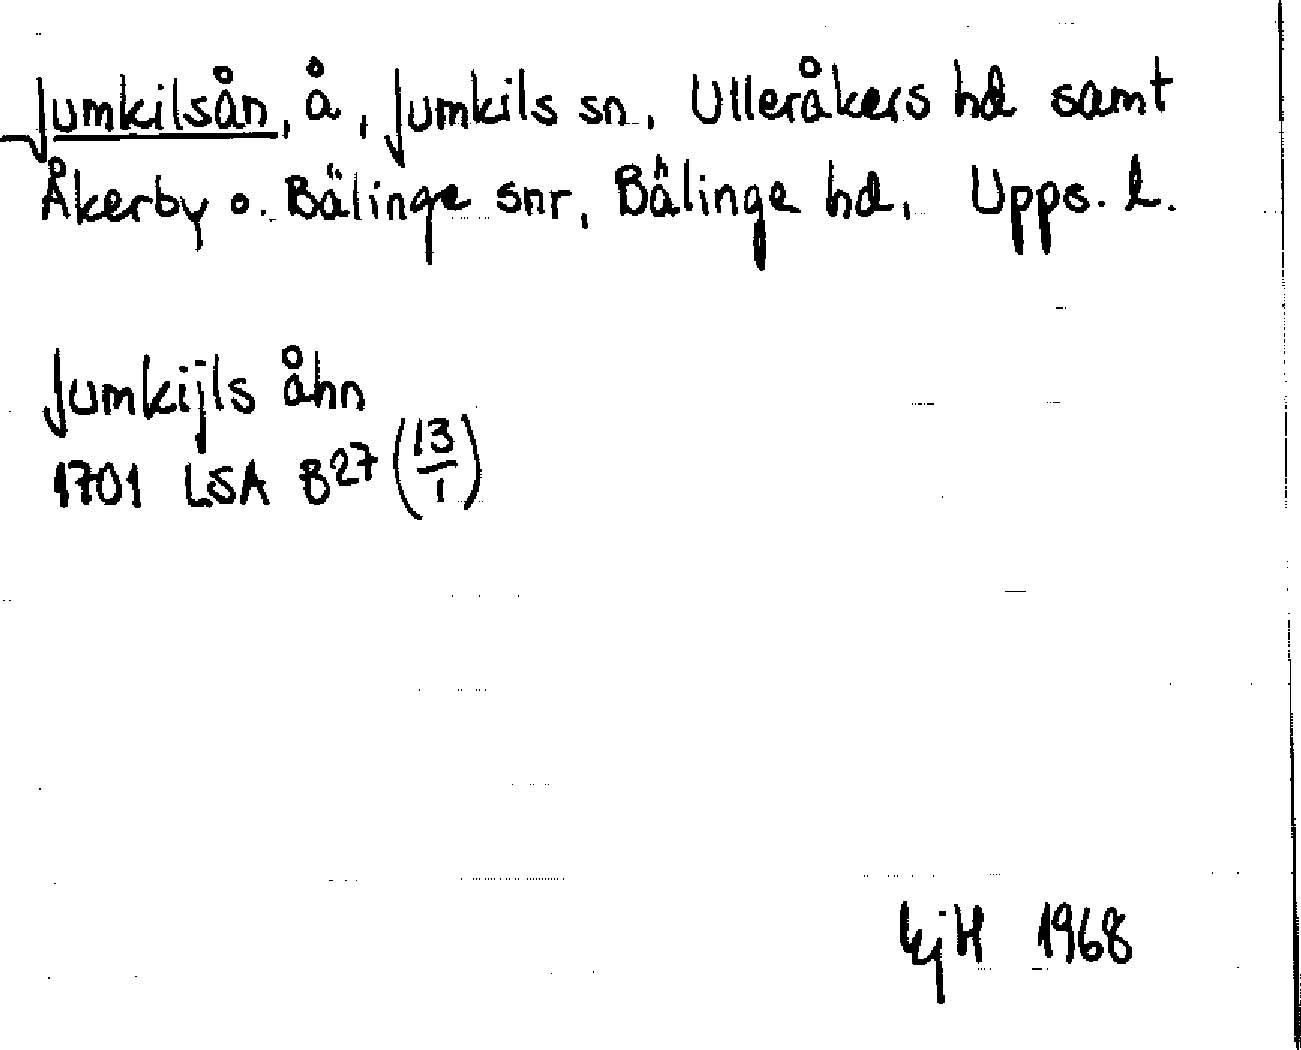 Jumkilsån, å, Jumkils sn, Ulleråkers hd samt
Åkerby o. Bälinge snr, Bälinge hd, Upps. l.
Jumkijls åhn
1701 LSA B27 (13/1)
1968